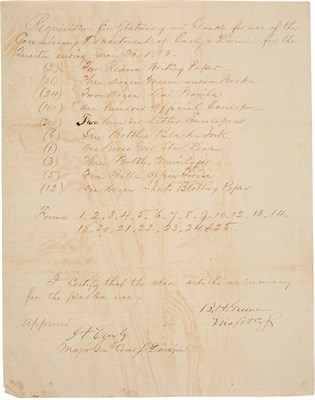 Requisition for Stationery and Blanks for use of the
Commissary Department of Early's Division for the
Quarter ending
(2) Two Reams Writing Paper
(36) Three Dozen Memorandum Books
(24) Two Dozen Lead Pencils
(100) One hundred Official Envelopes
(200) Two hundred Letter Envelopes
(6) Six Bottles Black Ink
(1) One Gross Steel Pens
(3) Three Bottles Mucilage
(5) Five Balls Office Twine
(12) One Dozen Sheets Blotting Paper
Forms 1, 2, 3, 4, 5, 6, 7, 8, 9, 10, 12, 13, 14
20, 21, 22, 23, 24 & 25.
I Certify that the above articles are necessary
for the Public use.
Approved
J A Early
Major Genl Comdg Division